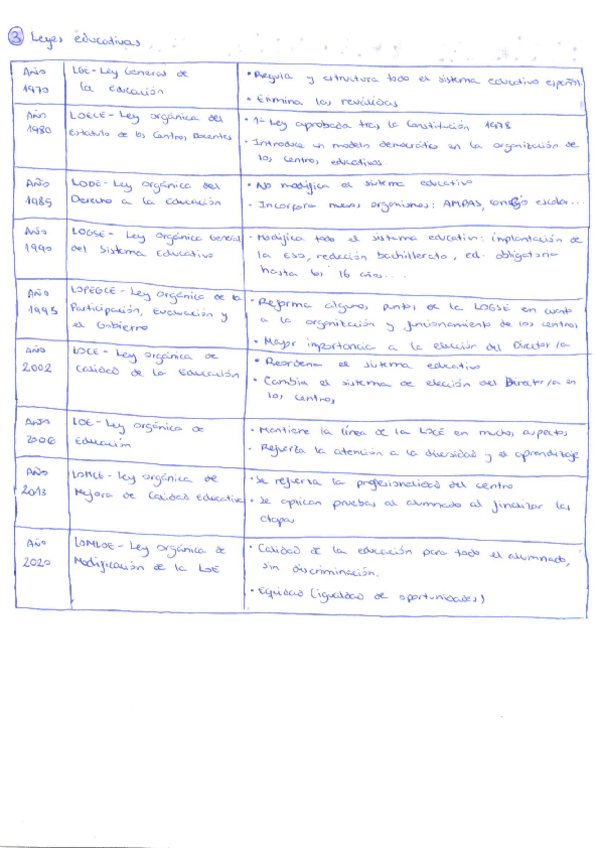 ③ Leyes educativas
Año 1970
LGE - Ley General de
la educación
• Regula y estructura todo el sistema educativo español
• Elimina las reválidas
Año 1980
LOECE - Ley orgánica del
Estatuto de los Centros Docentes
• 1ª Ley aprobada tras la Constitución 1978
• Introduce un modelo democrático en la organización de
los centros eductivos
Año 1985
LODE - Ley orgánica del
Derecho a la educación
• No modifica el sistema educativo
• Incorpora nuevos organismos: AMPAS, consejo escolar...
Año 1990
LOGSE - Ley Orgánica General
del Sistema Educativo
• Modifica todo el sistema educativo: implantación de
la ESO, reducción bachillerato, ed. obligatoria
hasta los 16 años...
Año 1995
LOPEGCE - Ley Orgánica de la
Participación, Evaluación y
el Gobierno
• Reforma algunos puntos de la LOGSE en cuanto
a la organización y funcionamiento de los centros
• Mayor importancia a la elección del Director/a
Año 2002
LOCE - Ley orgánica de
Calidad de la Educación
• Reordena el sistema educativo
• Cambia el sistema de elección del Director/a en
los centros
Año 2006
LOE - Ley orgánica de
Educación
• Mantiene la línea de la LOCE en muchos aspectos
• Refuerza la atención a la diversidad y el aprendizaje
Año 2013
LOMCE - Ley orgánica de
Mejora de Calidad educativa
• Se refuerza la profesionalidad del centro
• Se aplican pruebas al alumnado al finalizar las
etapas
Año 2020
LOMLOE - Ley orgánica de
Modificación de la LOE
• Calidad de la educación para todo el alumnado,
sin discriminación.
• Equidad (igualdad de oportunidades)